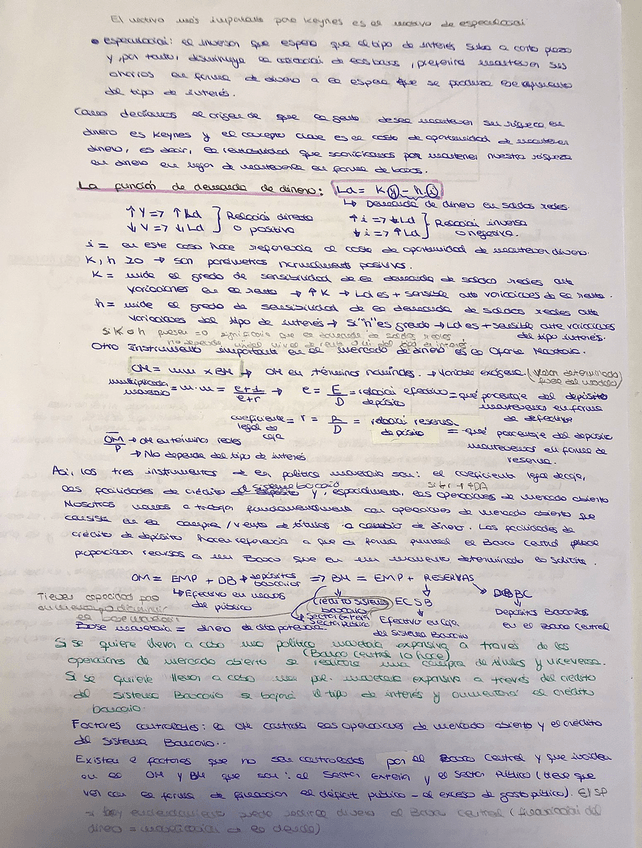 El motivo más importante para Keynes es el motivo de especulación
• especulación: el inversor que espera que el tipo de interés suba a corto plazo
y, por tanto, disminuya la cotización de los bonos, preferirá mantener sus
ahorros en forma de dinero a la espera que se produzca ese aumento
del tipo de interés.
Como decíamos el origen de que la gente desea mantener su riqueza en
dinero es Keynes y el concepto clave es el coste de oportunidad de mantener
dinero, es decir, la rentabilidad que sacrificamos por mantener nuestra riqueza
en dinero en lugar de mantenerla en forma de bonos.
La función de demanda de dinero: Ld = K(y) - h(i)
↳ Demanda de dinero en saldos reales.
↑Y => ↑Ld ] Relación directa ↑i => ↓Ld } Relación inversa
↓Y => ↓Ld ] o positiva ↓i => ↑Ld } o negativa.
i = en este caso hace referencia al coste de oportunidad de mantener dinero.
K, h ≥0 → son parámetros normalmente positivos.
K = mide el grado de sensibilidad de la demanda de saldos reales ante
variaciones en la renta → ↑K → Ld es + sensible ante variaciones de la renta.
h = mide el grado de sensibilidad de la demanda de saldos reales ante
variaciones del tipo de interés → Si "h" es grande → Ld es + sensible ante variaciones
del tipo interés.
si K o h fuesen =0 significa que la demanda de saldos reales
no depende nivel de renta o del tipo de interés
Otro instrumento importante en el mercado de dinero es la Oferta Monetaria.
OM = mm x BM → OM en términos nominales. → Variable exógena (Valor determinado
fuera del modelo)
multiplicador
monetario = m·m = e+1 / e+r → e = E / D = relación efectivo / depósito = qué porcentaje del depósito
mantenemos en forma
de efectivo
coeficiente
legal de
caja = r = R / D = relación reserva / depósito = qué porcentaje del depósito
mantenemos en forma de
reserva.
OM / P → OM en término reales
→ No depende del tipo de interés
Así, los tres instrumentos de la política monetaria son: el coeficiente legal de caja,
las facilidades de crédito al sistema bancario y, especialmente, las operaciones de mercado abierto
Nosotros vamos a trabajar fundamentalmente con operaciones de mercado abierto que
consiste en la compra/venta de títulos a cambio de dinero. Las facilidades de
crédito de depósito hacen referencia a que de forma puntual el Banco Central puede
proporcionar recursos a un Banco que en un momento determinado lo solicite.
OM = EMP + DB → depósitos bancarios => BM = EMP + RESERVAS
↳ Efectivo en manos
del público
Crédito sistema
bancario
Sector Exterior
Sector Público
ECSB
Efectivo en caja
del sistema Bancario
DBBC
Depósitos Bancarios
en el Banco Central
Base monetaria = dinero de alta potencia
Si se quiere llevar a cabo una política monetaria expansiva a través de las
(Banco Central lo hace)
operaciones de mercado abierto se realizará una compra de títulos y viceversa.
Si se quiere llevar a cabo una pol. monetaria expansiva a través del crédito
del sistema Bancario se bajará el tipo de interés y aumentará el crédito
bancario.
Factores controlables: la OM controla las operaciones de mercado abierto y el crédito
del sistema Bancario..
Existen 2 factores que no son controlados por el Banco Central y que inciden
en la OM y BM que son: el Sector exterior y el Sector Público (tiene que
ver con la forma de financiación el déficit público - el exceso de gasto público). El SP
dinero al Banco Central (financiación del
dinero = monetización de la deuda)